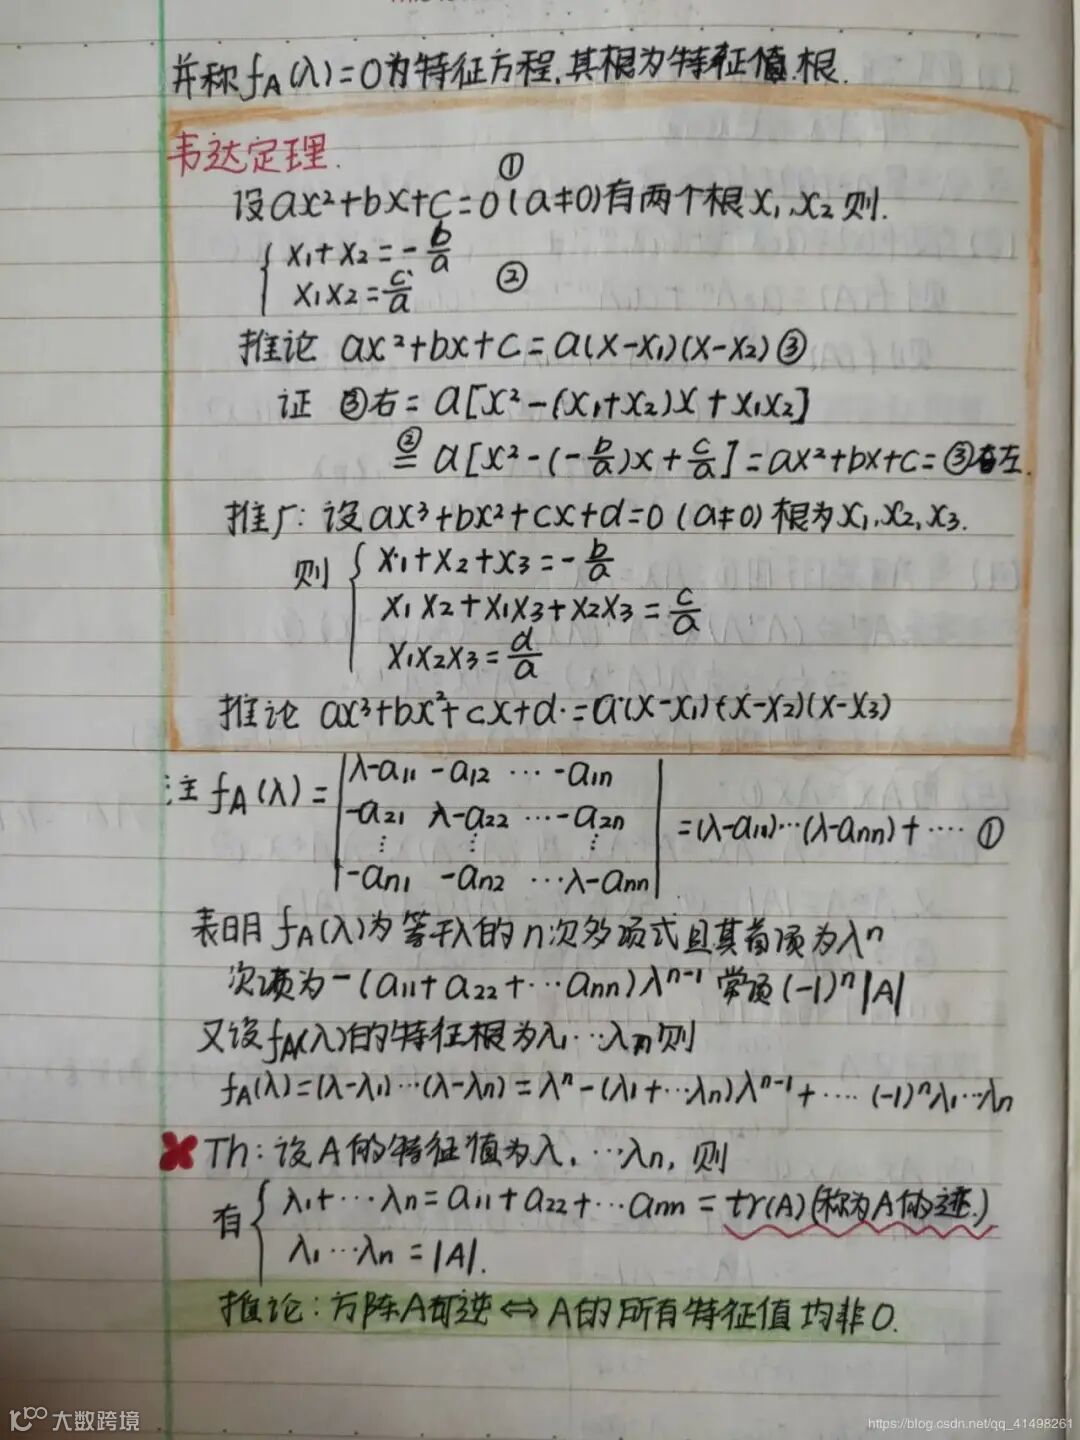 并称 f_A(λ)=0为特征方程,其根为特征值.根.
韦达定理.
设ax²+bx+c=0(a≠0)①有两个根x₁,x₂则.
{ x₁+x₂=-b/a
x₁x₂=c/a ②
推论 ax²+bx+c=a(x-x₁)(x-x₂)③
证 ③右=a[x²-(x₁+x₂)x+x₁x₂]
②= a[x²-(-b/a)x+c/a]=ax²+bx+c=③左.
推广:设ax³+bx²+cx+d=0(a≠0)根为x₁,x₂,x₃.
则 { x₁+x₂+x₃=-b/a
x₁x₂+x₁x₃+x₂x₃=c/a
x₁x₂x₃=d/a
推论 ax³+bx²+cx+d=a(x-x₁)(x-x₂)(x-x₃)
注 f_A(λ)= |λ-a₁₁ -a₁₂ ⋯ -a₁n|
|-a₂₁ λ-a₂₂ ⋯ -a₂n|
⋮ ⋮ ⋮ =(λ-a₁₁)⋯(λ-ann)+⋯⋯ ①
|-an₁ -an₂ ⋯ λ-ann|
表明f_A(λ)为等于λ的n次多项式且其首项为λⁿ
次项为-(a₁₁+a₂₂+⋯ann)λⁿ⁻¹ 常项(-1)ⁿ|A|
又设f_A(λ)的特征根为λ₁⋯λn则
f_A(λ)=(λ-λ₁)⋯(λ-λn)=λⁿ-(λ₁+⋯λn)λⁿ⁻¹+⋯⋯(-1)ⁿλ₁⋯λn
Th:设A的特征值为λ₁⋯λn,则
有 { λ₁+⋯λn=a₁₁+a₂₂+⋯ann=tr(A)(称为A的迹.)
λ₁⋯λn=|A|.
推论:方阵A可逆⇔A的所有特征值均非0.
大数跨境
https://blog.csdn.net/qq_41498261